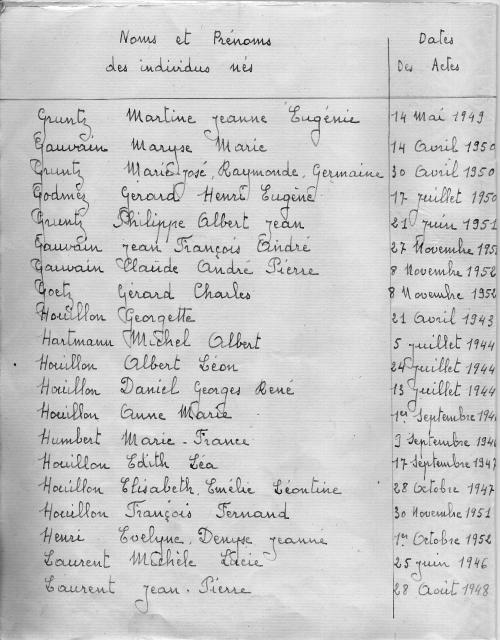 Noms et Prénoms Dates
des individus nés Des Actes
Gruntz Martine Jeanne Eugénie 14 Mai 1949
Gauvain Maryse Marie 14 Avril 1950
Gruntz Marie-José, Raymonde, Germaine 30 Avril 1950
Godmez Gérard Henri Eugène 17 Juillet 1950
Gruntz Philippe Albert Jean 21 Juin 1951
Gauvain Jean François André 27 Novembre
Gauvain Claude André Pierre 8 Novembre 1952
Goetz Gérard Charles 8 Novembre 1952
Houillon Georgette 21 Avril 1943
Hartmann Michel Albert 5 Juillet 1944
Houillon Albert Léon 24 Juillet 1944
Houillon Daniel Georges René 13 Juillet 1944
Houillon Anne Marie 1er Septembre
Humbert Marie-France 3 Septembre
Houillon Edith Léa 17 Septembre 1947
Houillon Elisabeth, Emélie Léontine 28 Octobre 1947
Houillon François Fernand 30 Novembre 1951
Henri Evelyne, Denyse Jeanne 1er Octobre 1952
Laurent Michèle Lucie 25 Juin 1946
Laurent Jean-Pierre 28 Août 1948